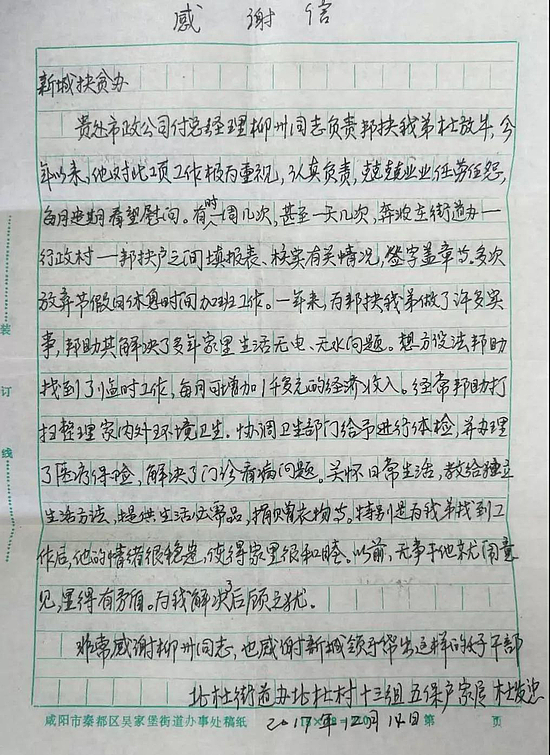 感谢信
新城扶贫办
贵处市政公司付总经理柳州同志负责邦扶我弟杜放牛,今
年以来,他对此项工作极为重视,认真负责,兢兢业业任劳任怨,
每月定期看望慰问。有时一周几次,甚至一天几次,奔波在街道办一
行政村一邦扶户之间填报表、核实有关情况,签字盖章等。多次
放弃节假日休息时间加班工作。一年来,为邦扶我弟做了许多实
事,帮助其解决了多年家里生活无电、无水问题。想方设法帮助
找到了临时工作,每月可增加1千多元的经济收入。经常帮助打
扫整理家内外环境卫生。协调卫生部门给予进行体检,并办理
了医疗保险,解决了门诊看病问题。关怀日常生活,教给独立
生活方法,提供生活必需品,捐赠衣物等。特别是为我弟找到工
作后,他的情绪很稳定,使得家里很和睦。以前,无事于他就闹意
见,显得有矛盾。为我解决了后顾之忧。
非常感谢柳州同志,也感谢新城领导带出这样的好干部
北杜街道办北杜村十三组五保户家属杜
2017年12月14日
装
订
线
咸阳市秦都区吴家堡街道办事处稿纸
第 页